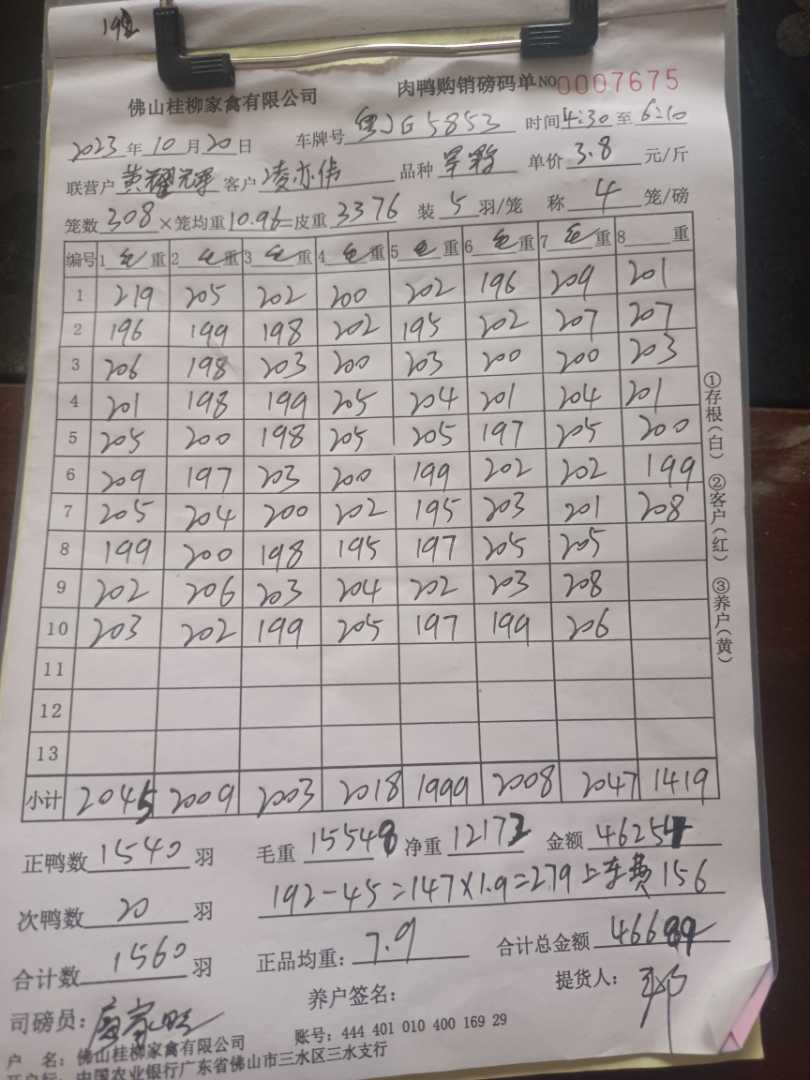 192
佛山桂柳家禽有限公司 肉鸭购销磅码单 NO 0007675
2023年10月20日 车牌号 粤JG5853 时间4:30至6:10
联营户 黄耀冠军 客户 凌亦伟 品种 单价3.8元/斤
笼数308×笼均重10.96=皮重3376 装5羽/笼 称4笼/磅
编号 1毛重 2毛重 3毛重 4毛重 5毛重 6毛重 7毛重 8 重
1 219 205 202 200 202 196 209 201
2 196 199 198 202 195 202 207 207
3 206 198 203 200 203 200 200 203
4 201 198 199 205 204 201 204 201
5 205 200 198 205 205 197 205 200
6 209 197 203 200 199 202 202 199
7 205 204 200 202 195 203 201 208
8 199 200 198 195 197 205 205
9 202 206 203 204 202 203 208
10 203 202 199 205 197 199 206
11
12
13
小计 2045 2009 2003 2018 1999 2008 2047 1419
①存根(白) ②客户(红) ③养户(黄)
正鸭数1540羽 毛重15548 净重12172 金额46254
次鸭数20羽 192-45=147×1.9=279上车费156
合计数1560羽 正品均重:7.9 合计总金额46689
司磅员: 养户签名: 提货人:
户 名:佛山桂柳家禽有限公司 账号:444 401 010 400 169 29
中国农业银行广东省佛山市三水区三水支行